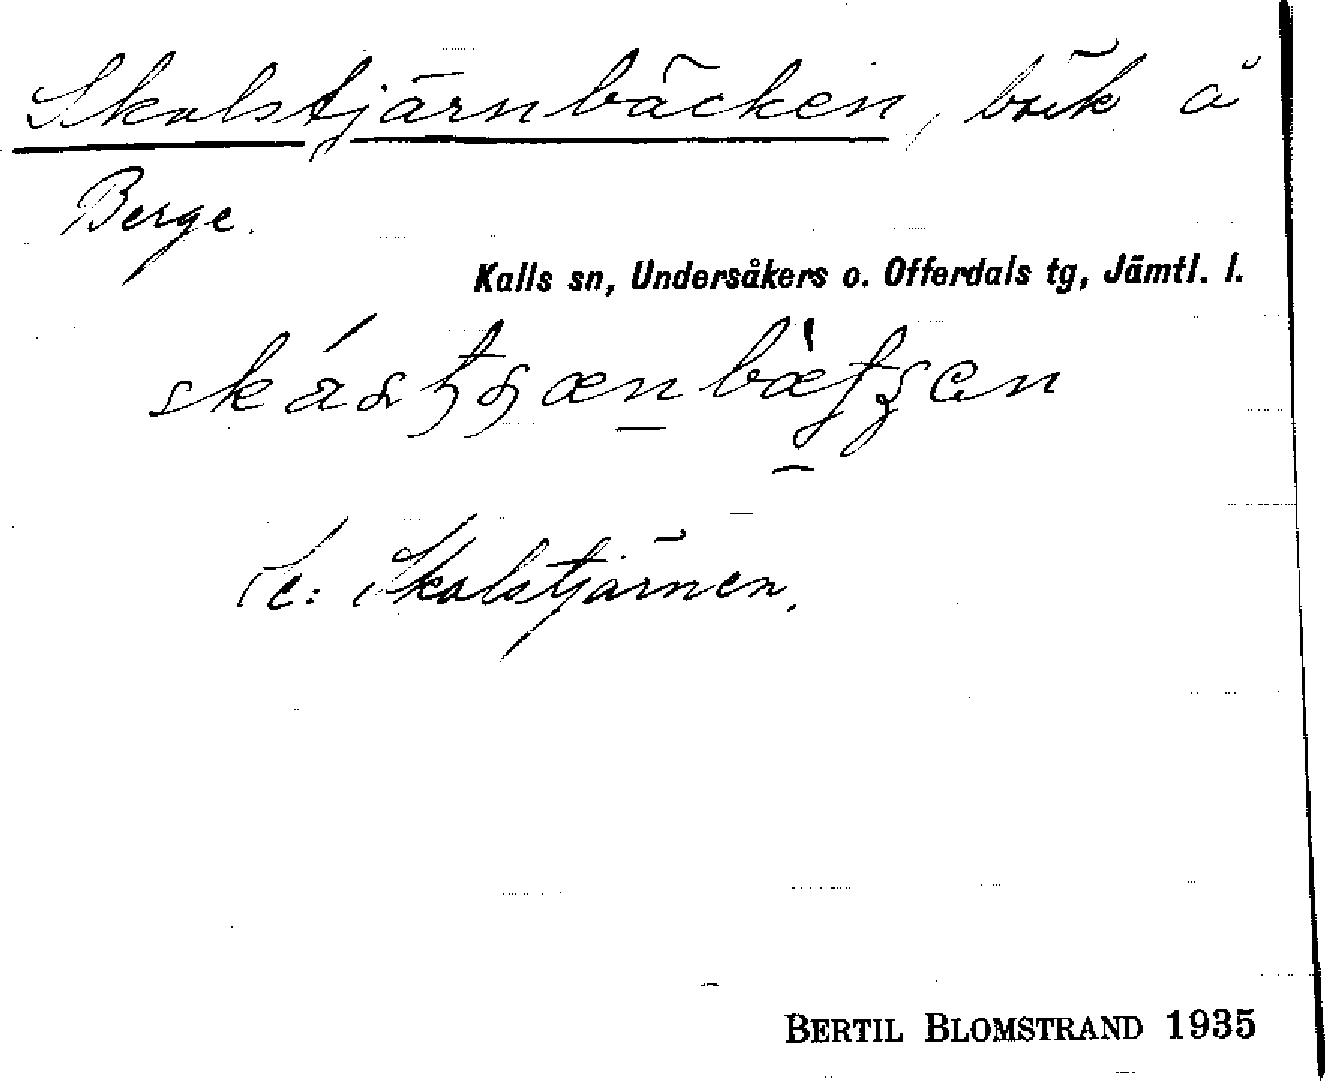 Skalstjärnbäcken, bäck å
Berge.
Kalls sn, Undersåkers o. Offerdals tg, Jämtl. l.
Se: Skalstjärnen.
BERTIL BLOMSTRAND 1935